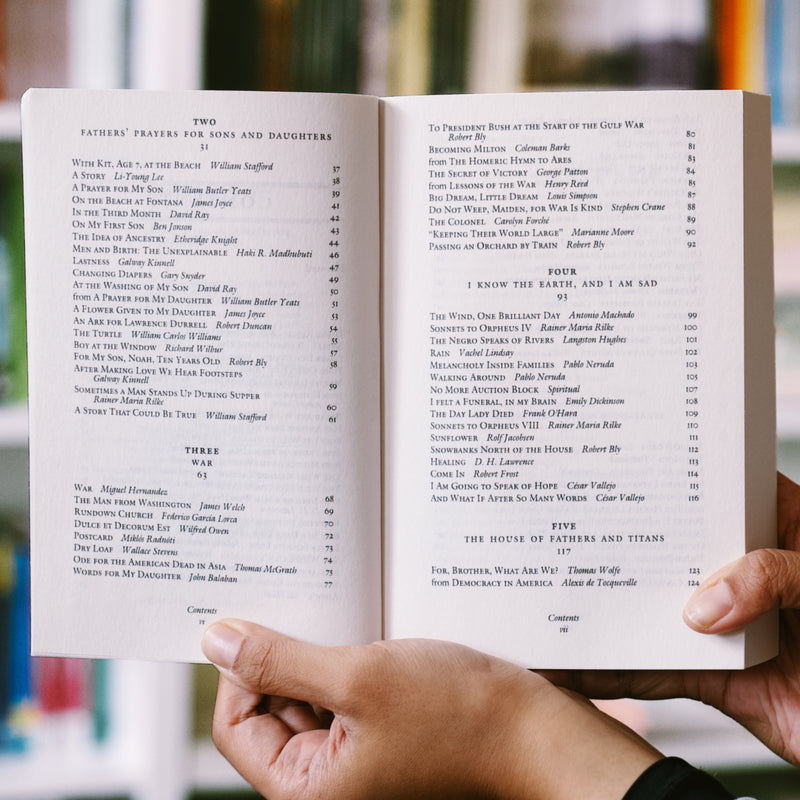 TWO
FATHERS' PRAYERS FOR SONS AND DAUGHTERS
31
WITH KIT, AGE 7, AT THE BEACH William Stafford 37
A STORY Li-Young Lee 38
A PRAYER FOR MY SON William Butler Yeats 39
ON THE BEACH AT FONTANA James Joyce 41
IN THE THIRD MONTH David Ray 42
ON MY FIRST SON Ben Jonson 43
THE IDEA OF ANCESTRY Etheridge Knight 44
MEN AND BIRTH: THE UNEXPLAINABLE Haki R. Madhubuti 46
LASTNESS Galway Kinnell 47
CHANGING DIAPERS Gary Snyder 49
AT THE WASHING OF MY SON David Ray 50
from A PRAYER FOR MY DAUGHTER William Butler Yeats 51
A FLOWER GIVEN TO MY DAUGHTER James Joyce 53
AN ARK FOR LAWRENCE DURRELL Robert Duncan 54
THE TURTLE William Carlos Williams 55
BOY AT THE WINDOW Richard Wilbur 57
FOR MY SON, NOAH, TEN YEARS OLD Robert Bly 58
AFTER MAKING LOVE WE HEAR FOOTSTEPS
Galway Kinnell 59
SOMETIMES A MAN STANDS UP DURING SUPPER
Rainer Maria Rilke 60
A STORY THAT COULD BE TRUE William Stafford 61
THREE
WAR
63
WAR Miguel Hernandez 68
THE MAN FROM WASHINGTON James Welch 69
RUNDOWN CHURCH Federico García Lorca 70
DULCE ET DECORUM EST Wilfred Owen 72
POSTCARD Miklós Radnóti 73
DRY LOAF Wallace Stevens 74
ODE FOR THE AMERICAN DEAD IN ASIA Thomas McGrath 75
WORDS FOR MY DAUGHTER John Balaban 77
Contents
vi
TO PRESIDENT BUSH AT THE START OF THE GULF WAR
Robert Bly 80
BECOMING MILTON Coleman Barks 81
from THE HOMERIC HYMN TO ARES 83
THE SECRET OF VICTORY George Patton 84
from LESSONS OF THE WAR Henry Reed 85
BIG DREAM, LITTLE DREAM Louis Simpson 87
DO NOT WEEP, MAIDEN, FOR WAR IS KIND Stephen Crane 88
THE COLONEL Carolyn Forché 89
"KEEPING THEIR WORLD LARGE" Marianne Moore 90
PASSING AN ORCHARD BY TRAIN Robert Bly 92
FOUR
I KNOW THE EARTH, AND I AM SAD
93
THE WIND, ONE BRILLIANT DAY Antonio Machado 99
SONNETS TO ORPHEUS IV Rainer Maria Rilke 100
THE NEGRO SPEAKS OF RIVERS Langston Hughes 101
RAIN Vachel Lindsay 102
MELANCHOLY INSIDE FAMILIES Pablo Neruda 103
WALKING AROUND Pablo Neruda 105
NO MORE AUCTION BLOCK Spiritual 107
I FELT A FUNERAL, IN MY BRAIN Emily Dickinson 108
THE DAY LADY DIED Frank O'Hara 109
SONNETS TO ORPHEUS VIII Rainer Maria Rilke 110
SUNFLOWER Rolf Jacobsen 111
SNOWBANKS NORTH OF THE HOUSE Robert Bly 112
HEALING D. H. Lawrence 113
COME IN Robert Frost 114
I AM GOING TO SPEAK OF HOPE César Vallejo 115
AND WHAT IF AFTER SO MANY WORDS César Vallejo 116
FIVE
THE HOUSE OF FATHERS AND TITANS
117
FOR, BROTHER, WHAT ARE WE? Thomas Wolfe 123
from DEMOCRACY IN AMERICA Alexis de Tocqueville 124
Contents
vii